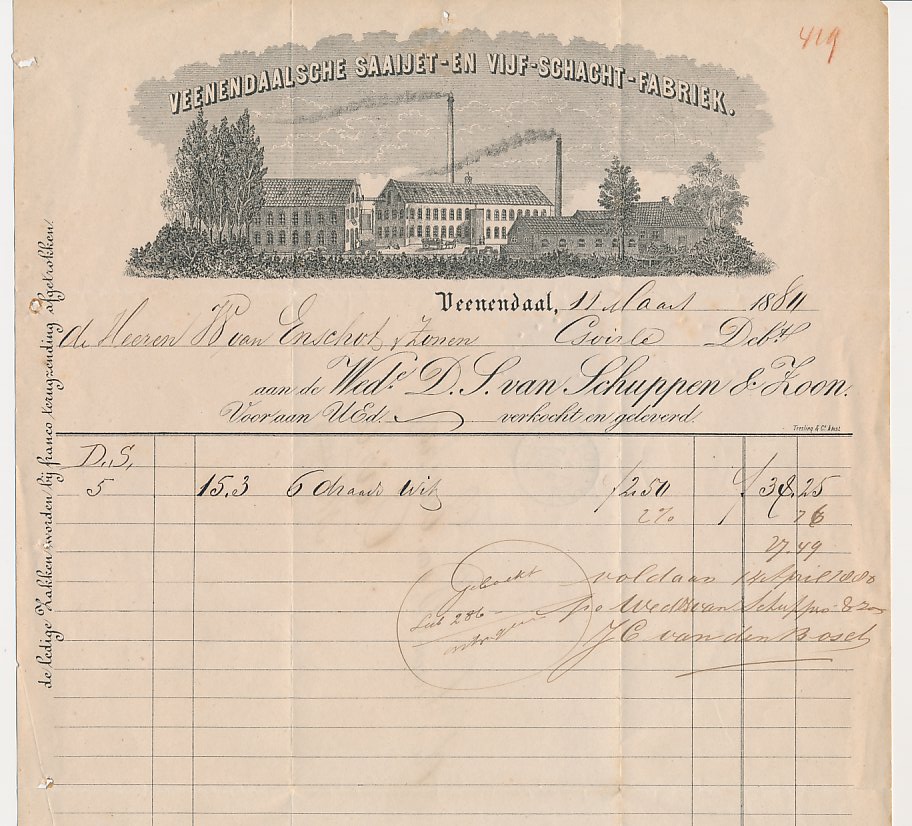 419
VEENENDAALSCHE SAAIJET-EN VIJF-SCHACHT-FABRIEK.
Veenendaal, 11 Maart 1880
de Heeren W van Enschot & Zonen Goirle Debt
aan de Wede. D. S. van Schuppen & Zoon.
Voor aan UEd. verkocht en geleverd.
Tresling & Co. Amst.
de ledige Zakken worden bij franco terugzending afgetrokken.
D.S.
5 15.3 6 draads Wit f 2.50 f 38.25
2% 76
37.49
Geboekt
voldaan 14 April 1880
po Wed DS van Schuppen & Zoon
J C van den Bosch
286